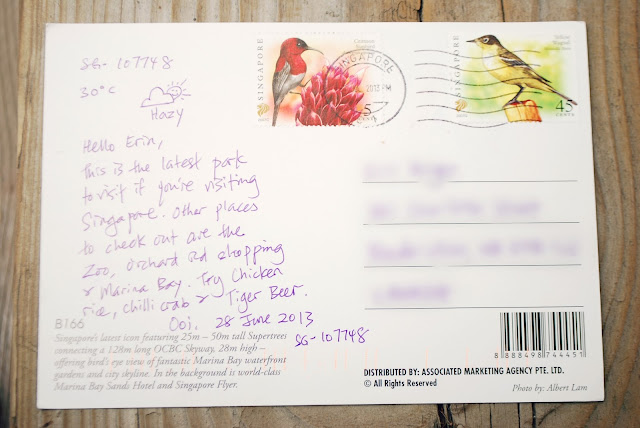 SG-107748
30°C
Hazy
Hello Erin,
this is the latest park
to visit if you're visiting
Singapore. Other places
to check out are the
Zoo, Orchard Rd shopping
& Marina Bay. Try Chicken
rice, chilli crab & Tiger Beer.
Ooi. 28 June 2013
SG-107748
B166
Singapore's latest icon featuring 25m – 50m tall Supertrees
connecting a 128m long OCBC Skyway, 28m high –
offering bird's eye view of fantastic Marina Bay waterfront
gardens and city skyline. In the background is world-class
Marina Bay Sands Hotel and Singapore Flyer.
SINGAPORE
Crimson
Sunbird
5
SINGAPORE
2013
SINGAPORE
Yellow
Wagtail
45
CENTS
8 888498 744451
DISTRIBUTED BY: ASSOCIATED MARKETING AGENCY PTE. LTD.
© All Rights Reserved
Photo by: Albert Lam